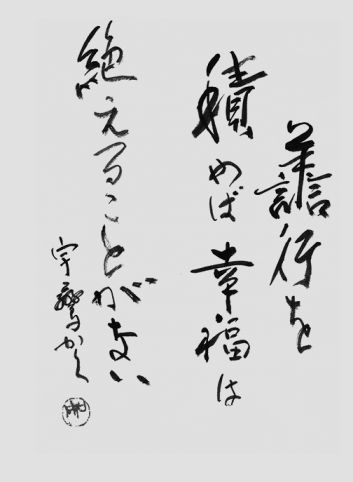 譱行を
積めば幸福は
絶えることがない
宇野かく